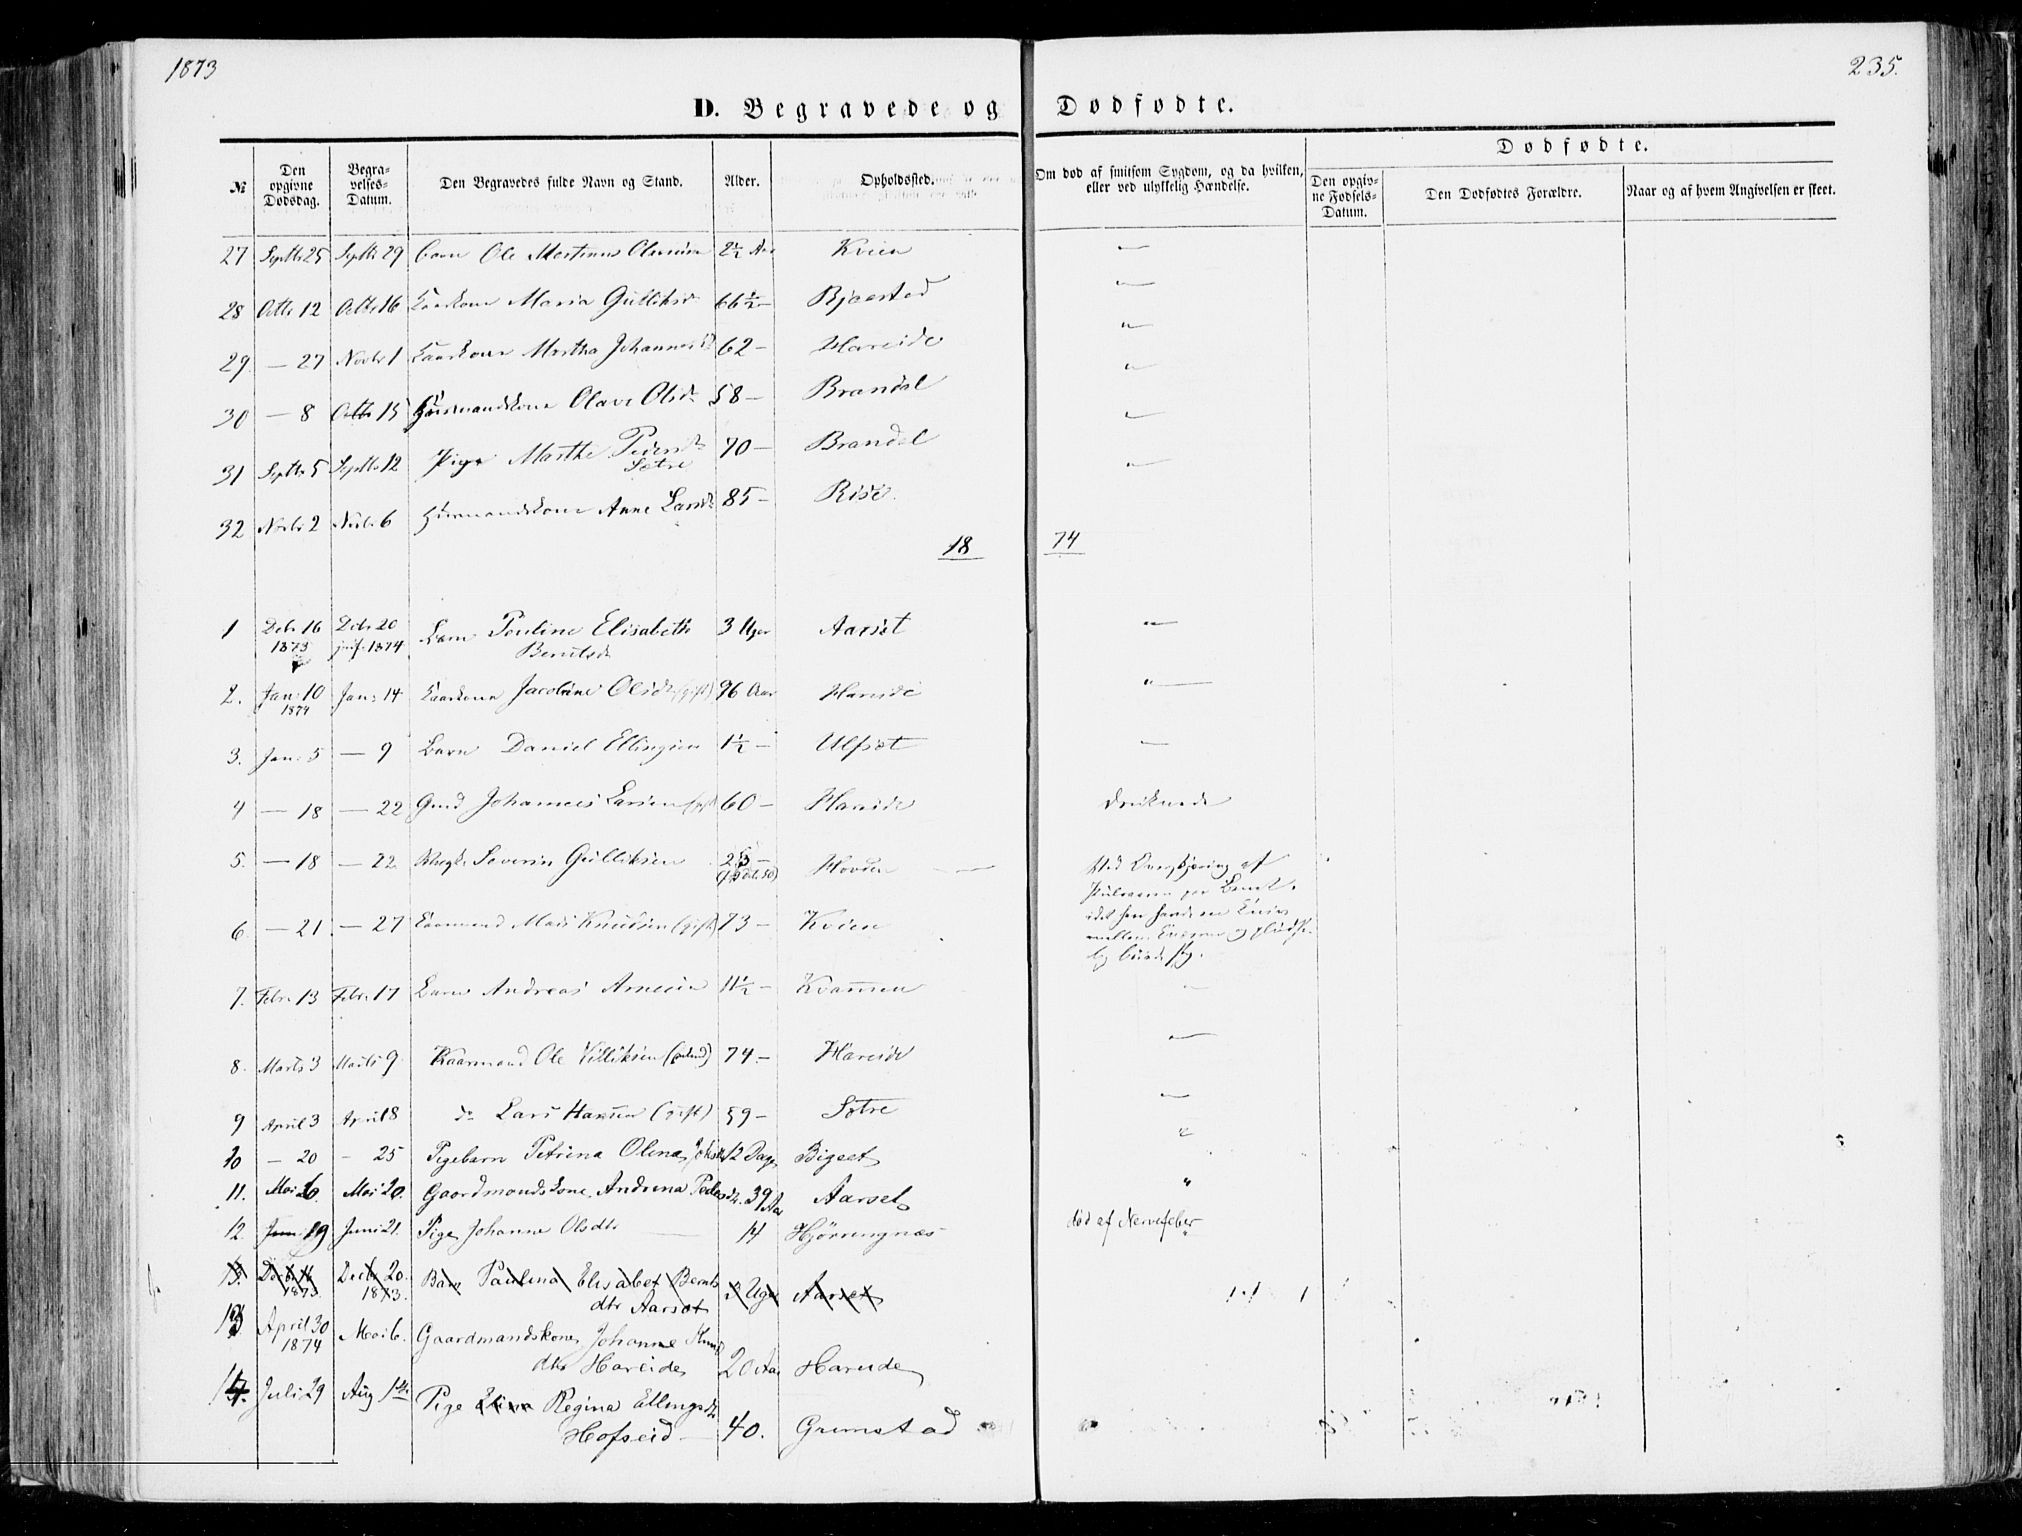 1873
235.
D. Begravede og Dødfødte.
Dødfødte.
№
Den opgivne Dødsdag.
Begravelses-Datum.
Den Begravedes fulde Navn og Stand.
Alder.
Opholdssted.
Om død af smitsom Sygdom, og da hvilken, eller ved ulykkelig Hændelse.
Den opgivne Fødsels-Datum.
Den Dødfødtes Forældre.
Naar og af hvem Angivelsen er skeet.
27 Septbr 25 Septbr 29 Barn Ole Martinus Olsen 2½ Aar Kvien —
28 Octbr 12 Octbr 16 Kaarkone Maria Gulliksd 66½ — —
29. — 27 Novbr 1 Kaarkone Martha Johannesd 62 — Hareide "
30 — 8 Octbr 15 Huusmandskone Olave Olsdr 58 — Brandal "
31 Septbr 5 Septbr 12 Pige Marthe Pedersdr 70 — Brandal —
Søtre
32 Novbr 2 Novbr 6 Huusmandskone Anne Larsdr 85 — Rise. "
18 74
1 Debr 16 Debr 20 Barn Pauline Elisabeth 3 Uger Aarsæt "
1873 1874 Berntsdr
2. Jan: 10 Jan: 14 Kaarkone Jacobine Olsdr (gift) 76 Aar Hareide "
1874
3. Jan: 5 — 9 Barn Daniel Ellingsen 1½ — Ulfsæt —
4 — 18 — 22 Gmd Johannes Larsen (gift) 60 — Hareide druknede
5. — 18 — 22 Severin Gulliksen 23 — Hovden Ved
6. — 21. — 27 Kaarmand Mads Knudsen (gift) 73 — Kvien
7. Febr. 13 Febr. 17 Barn Andreas Arnesen 11½ — Kvammen "
8. Marts 3 Marts 9. Kaarmand Ole 74. — Hareide "
9 April 3 April 8 do Lars Hansen (gift) 59 — Søtre —
10 — 20 — 25 Pigebarn Petrina Olena 12 Dage Bigset "
11. Mai 6. Mai 20. Gaardmandskone Andrina Pedersdtr. 39 Aar Aarset "
12. Juni 19 Juni 21. Pige Johanne Olsdtr — 14 Hjørungnæs død af Nervefeber
13. Decbr 16 Decbr 20. Barn Paulina Elisabet Bernts 3 Uger Aarset
1873. 1873. dtr Aarsæt
13 April 30 Mai 6. Gaardmandskone Johanne Knud
1874 dtr Hareide 20 Aar Hareide
14. Juli 29 Aug 1ste Pige Elina Regina Ellingsdtr
Hofseid — 40. Grimstad